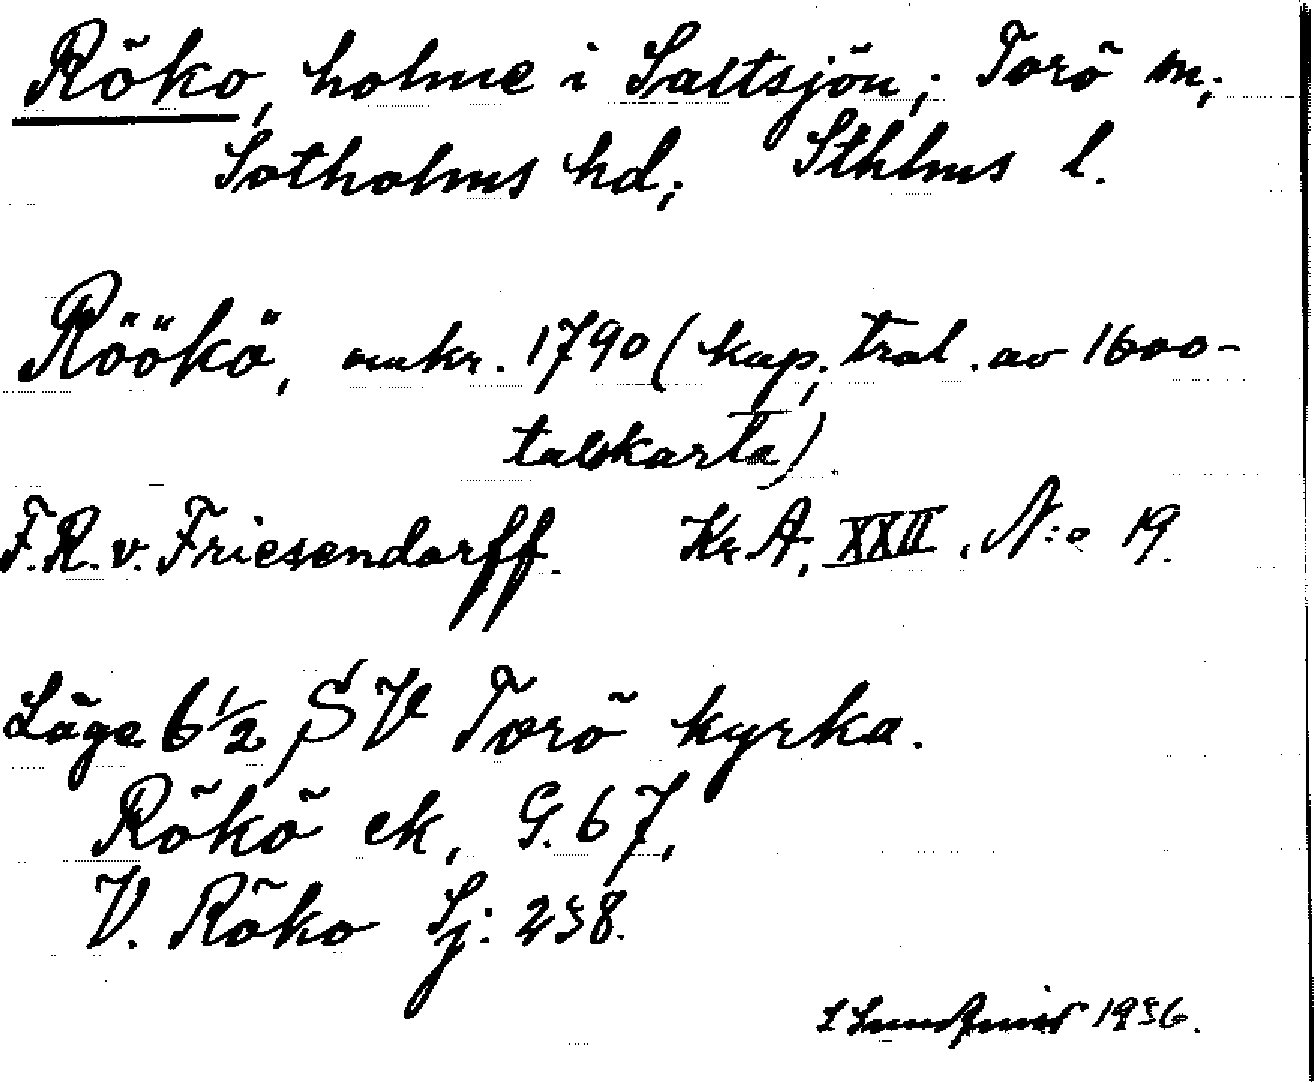 Röko, holme i Saltsjön; Torö sn;
Sotholms hd; Sthlms l.
Röökö, omkr. 1790 (kop; tral. av 1600-
talskarta)
F.R. v. Friesendorff. Kr. A. XXII. N:o 19.
Läge 6 1/2 SV Torö kyrka.
Rökö ek, G. 67,
V. Röko Sj: 238.
1936.